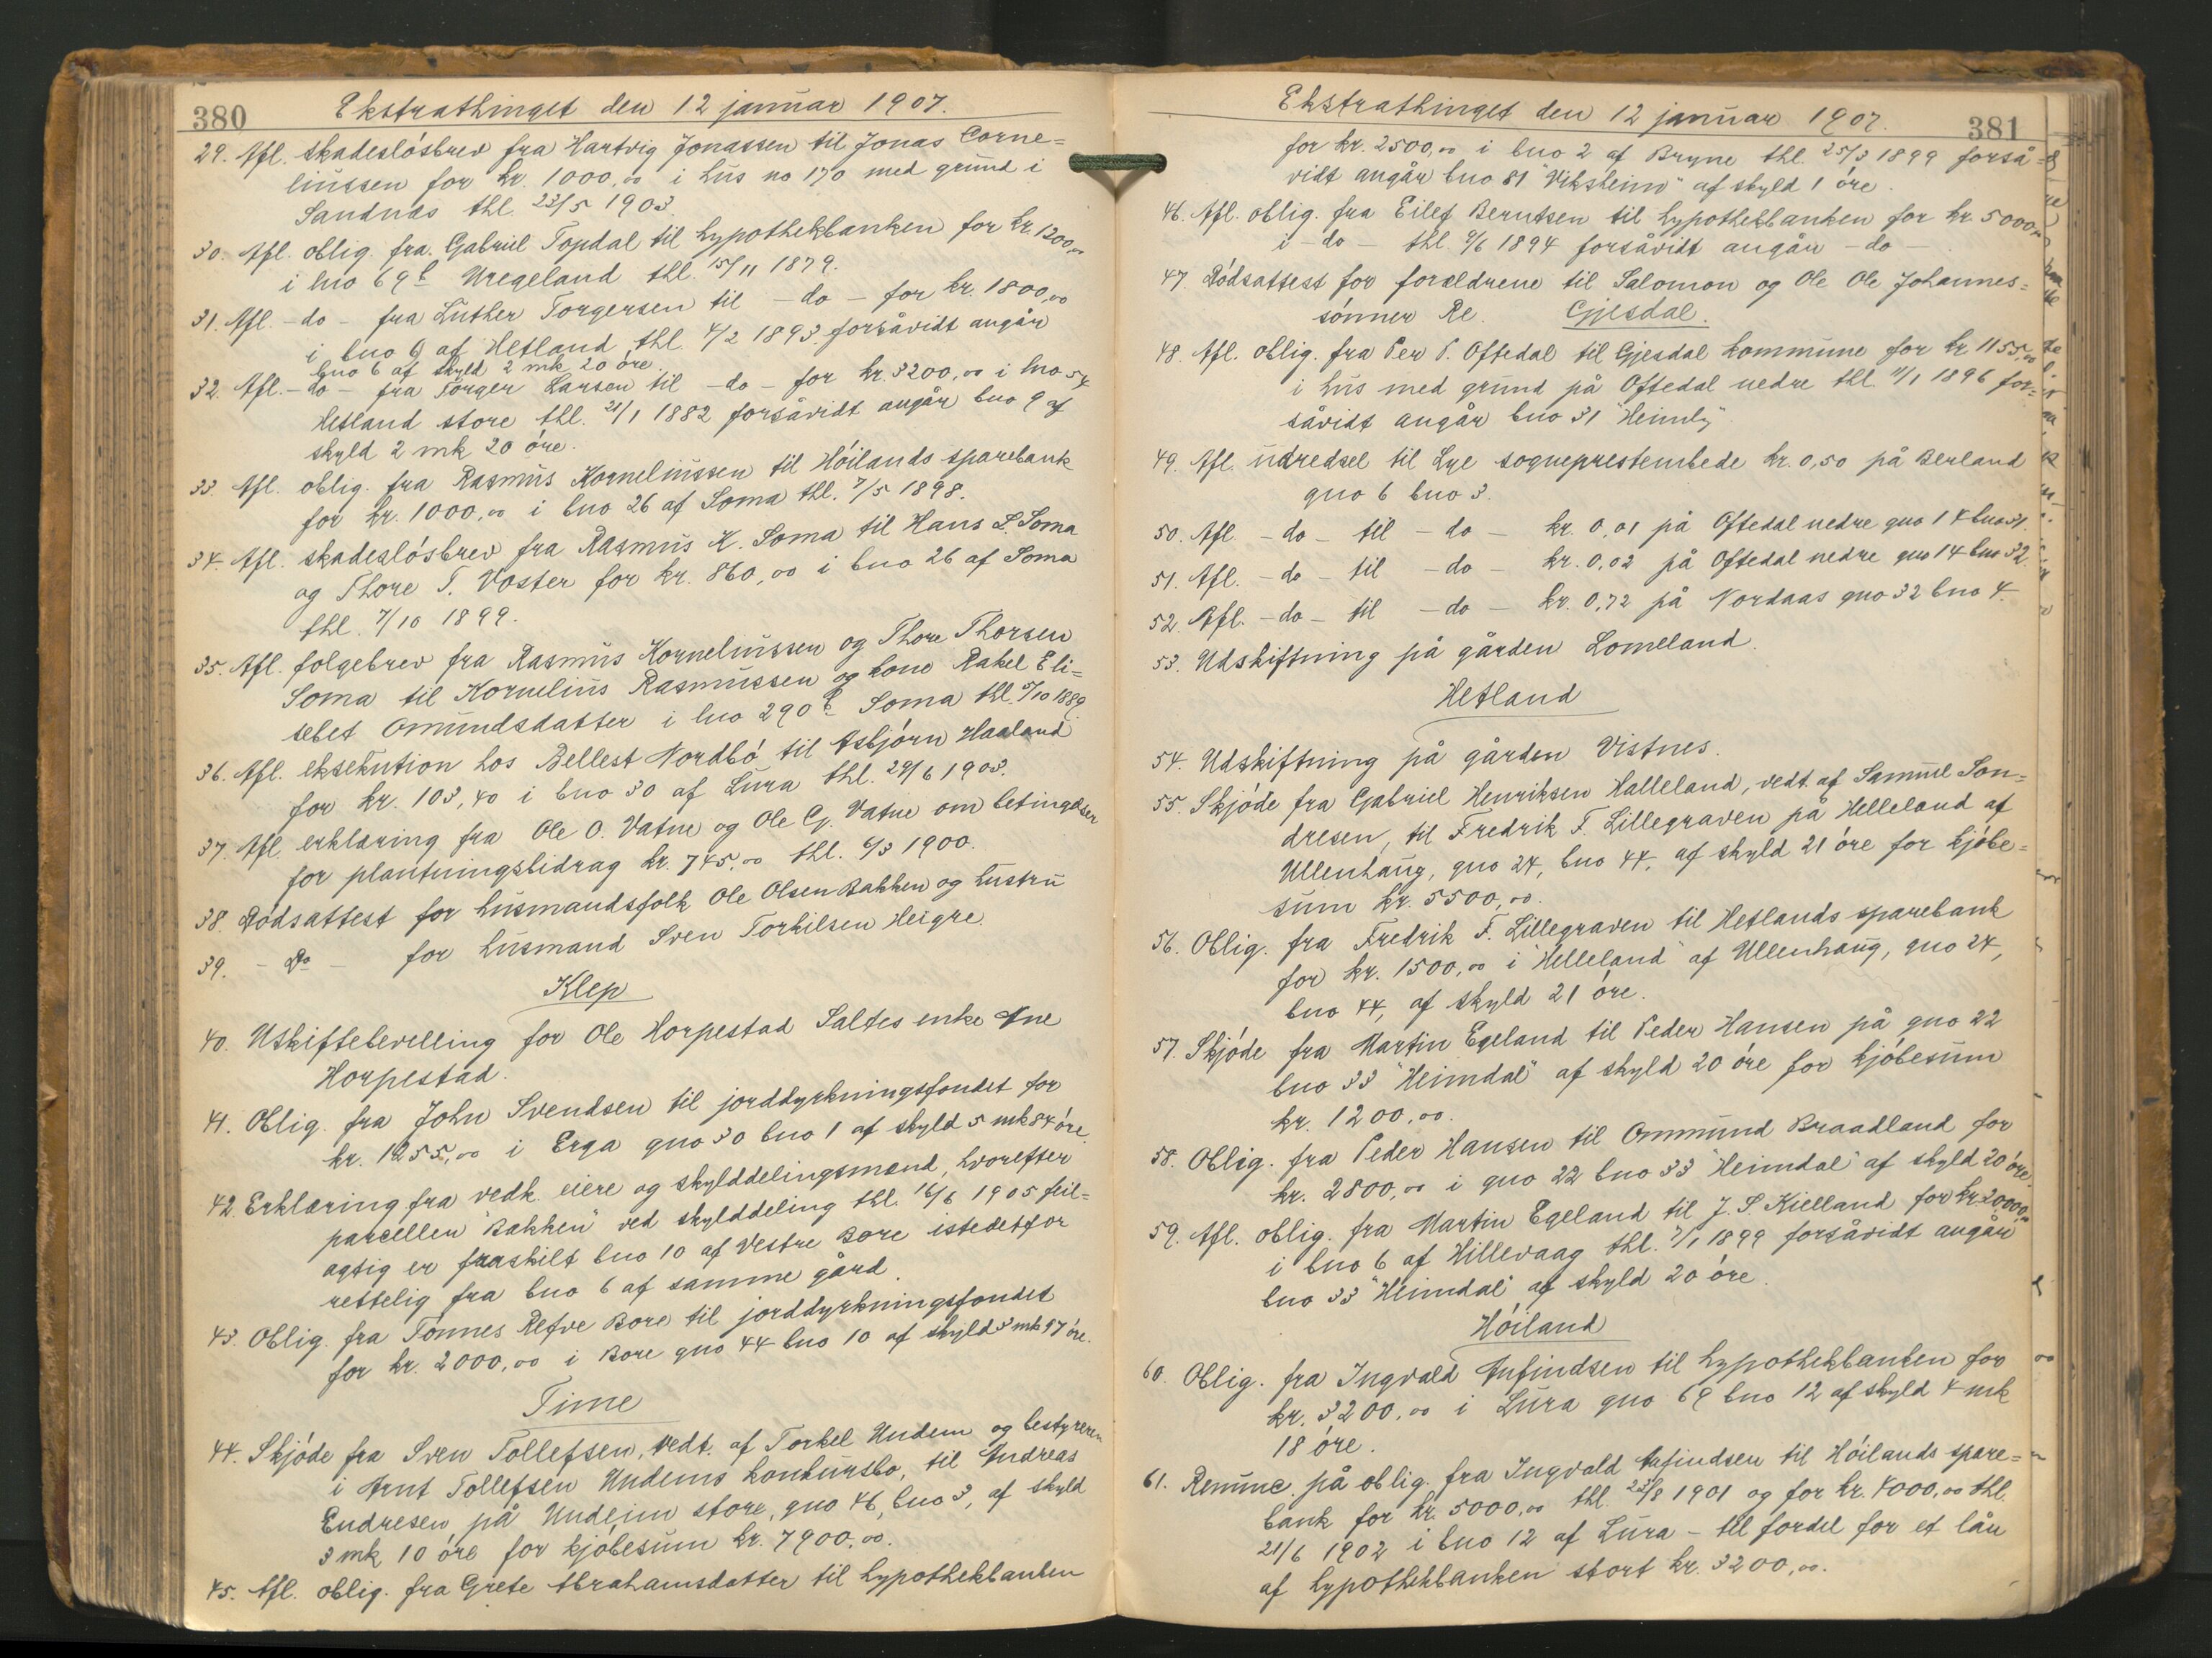 380
Ekstrathinget den 12 januar 1907.
29. Afl. skadesløsbrev fra Hartvig Jonassen til Jonas Corne=
liussen for kr. 1000,00 i hus no 170 med grund i
Sandnæs thl. 23/5 1903.
30. Afl. oblig. fra Gabriel Topdal til hypothekbanken for kr. 1200,00
i lno 69b Uregeland thl. 15/11 1879.
31. Afl. -do- fra Luther Torgersen til -do- for kr. 1800,00
i bno 6 af Hetland thl. 4/2 1893. forsåvidt angår
bno 6 af skyld 2 mk 20 øre.
32. Afl. -do- fra Torger Larsen til -do- for kr. 3200,00 i lno 54
Hetland store thl. 21/1 1882 forsåvidt angår bno 9 af
skyld 2 mk 20 øre.
33. Afl. oblig. fra Rasmus Korneliussen til Høilands sparebank
for kr. 1000,00 i bno 26 af Soma thl. 7/5 1898.
34. Afl. skadesløsbrev fra Rasmus K. Soma til Hans L. Soma
og Thore T. Voster for kr. 860,00 i bno 26 af Soma
thl. 7/10 1899.
35. Afl. følgebrev fra Rasmus Korneliussen og Thore Thorsen
Soma til Kornelius Rasmussen og kone Rakel Eli=
sebet Omundsdatter i lno 290b Soma thl. 5/10 1889.
36. Afl. eksekution hos Bellest Nordbø til Asbjørn Haaland
for kr. 103,40 i bno 30 af Lura thl. 29/6 1903.
37. Afl. erklæring fra Ole O. Vatne og Ole G. Vatne om betingelser
for plantningsbidrag kr. 745,00 thl. 6/3 1900.
38. Dødsattest for husmandsfolk Ole Olsen Bakken og hustru
39. - Do - for husmand Sven Torkilsen Heigre.
Klep
40. Uskiftebevilling for Ole Horpestad Saltes enke Ane
Horpestad.
41. Oblig. fra John Svendsen til jorddyrkningsfondet for
kr. 1255,00 i Erga gno 30 bno 1 af skyld 5 mk 84 øre.
42. Erklæring fra vedk. eiere og skylddelingsmænd, hvorefter
parcellen "Bakken" ved skylddeling thl. 16/6 1905 feil=
agtig er fraskilt bno 10 af Vestre Bore istedetfor
rettelig fra bno 6 af samme gård.
43. Oblig. fra Tønnes Refve Bore til jorddyrkningsfondet
for kr. 2000,00 i Bore gno 44 bno 10 af skyld 3 mk 97 øre.
Time
44. Skjøde fra Sven Tollefsen, vedt. af Torkel Undem og bestyreren
i Arnt Tollefsen Undems konkursbo, til Andreas
Endresen på Undeim store, gno 46, bno 3, af skyld
3 mk 10 øre for kjøbesum kr. 7900,00.
45. Afl. oblig. fra Grete Abrahamsdatter til hypothekbanken
Ekstrathinget den 12 januar 1907.
381
for kr. 2500,00 i bno 2 af Bryne thl. 25/3 1899 forså=
vidt angår bno 81 "Viksheim" af skyld 1 øre.
46. Afl. oblig. fra Eilef Berntsen til hypothekbanken for kr. 5000,00
i -do- thl. 9/6 1894 forsåvidt angår -do-.
47. Dødsattest for forældrene til Salomon og Ole Ole Johannes=
sønner Re.
Gjesdal.
48. Afl. oblig. fra Per P. Oftedal til Gjesdal kommune for kr 1155,00
i hus med grund på Oftedal nedre thl. 11/1 1896 for=
såvidt angår bno 31 "Heimly".
49. Afl. udredsel til Lye sogneprestembede kr. 0,50 på Berland
gno 6 bno 3.
50. Afl. -do- til -do- kr. 0,01 på Oftedal nedre gno 14 bno 31.
51. Afl. -do- til -do- kr. 0,02 på Oftedal nedre gno 14 bno 32.
52. Afl. -do- til -do- kr. 0,72 på Nordaas gno 32 bno 4.
53. Udskiftning på gården Lomeland.
Hetland
54. Udskiftning på gården Vistnes.
55. Skjøde fra Gabriel Henriksen Halleland, vedt. af Samuel Son=
dresen, til Fredrik F. Lillegraven på Helleland af
Ullenhaug, gno 24, bno 44, af skyld 21 øre for kjøbe=
sum kr. 5500,00.
56. Oblig. fra Fredrik F. Lillegraven til Hetlands sparebank
for kr. 1500,00 i "Helleland" af Ullenhaug, gno 24,
bno 44, af skyld 21 øre.
57. Skjøde fra Martin Egeland til Peder Hansen på gno 22
bno 33 "Heimdal" af skyld 20 øre for kjøbesum
kr. 1200,00.
58. Oblig. fra Peder Hansen til Ommund Braadland for
kr. 2800,00 i gno 22 bno 33 "Heimdal" af skyld 20 øre.
59. Afl. oblig. fra Martin Egeland til J. S. Kielland for kr. 20000,00
i bno 6 af Hillevaag thl. 7/1 1899 forsåvidt angår
bno 33 "Heimdal" af skyld 20 øre.
Høiland
60. Oblig. fra Ingvald Anfindsen til hypothekbanken for
kr. 3200,00 i Lura gno 69 bno 12 af skyld 4 mk
18 øre.
61. Renunc. på oblig. fra Ingvald Anfindsen til Høilands spare=
bank for kr. 5000,00 thl. 23/8 1901 og for kr. 4000,00 thl.
21/6 1902 i bno 12 af Lura - til fordel for et lån
af hypothekbanken stort kr. 3200,00.